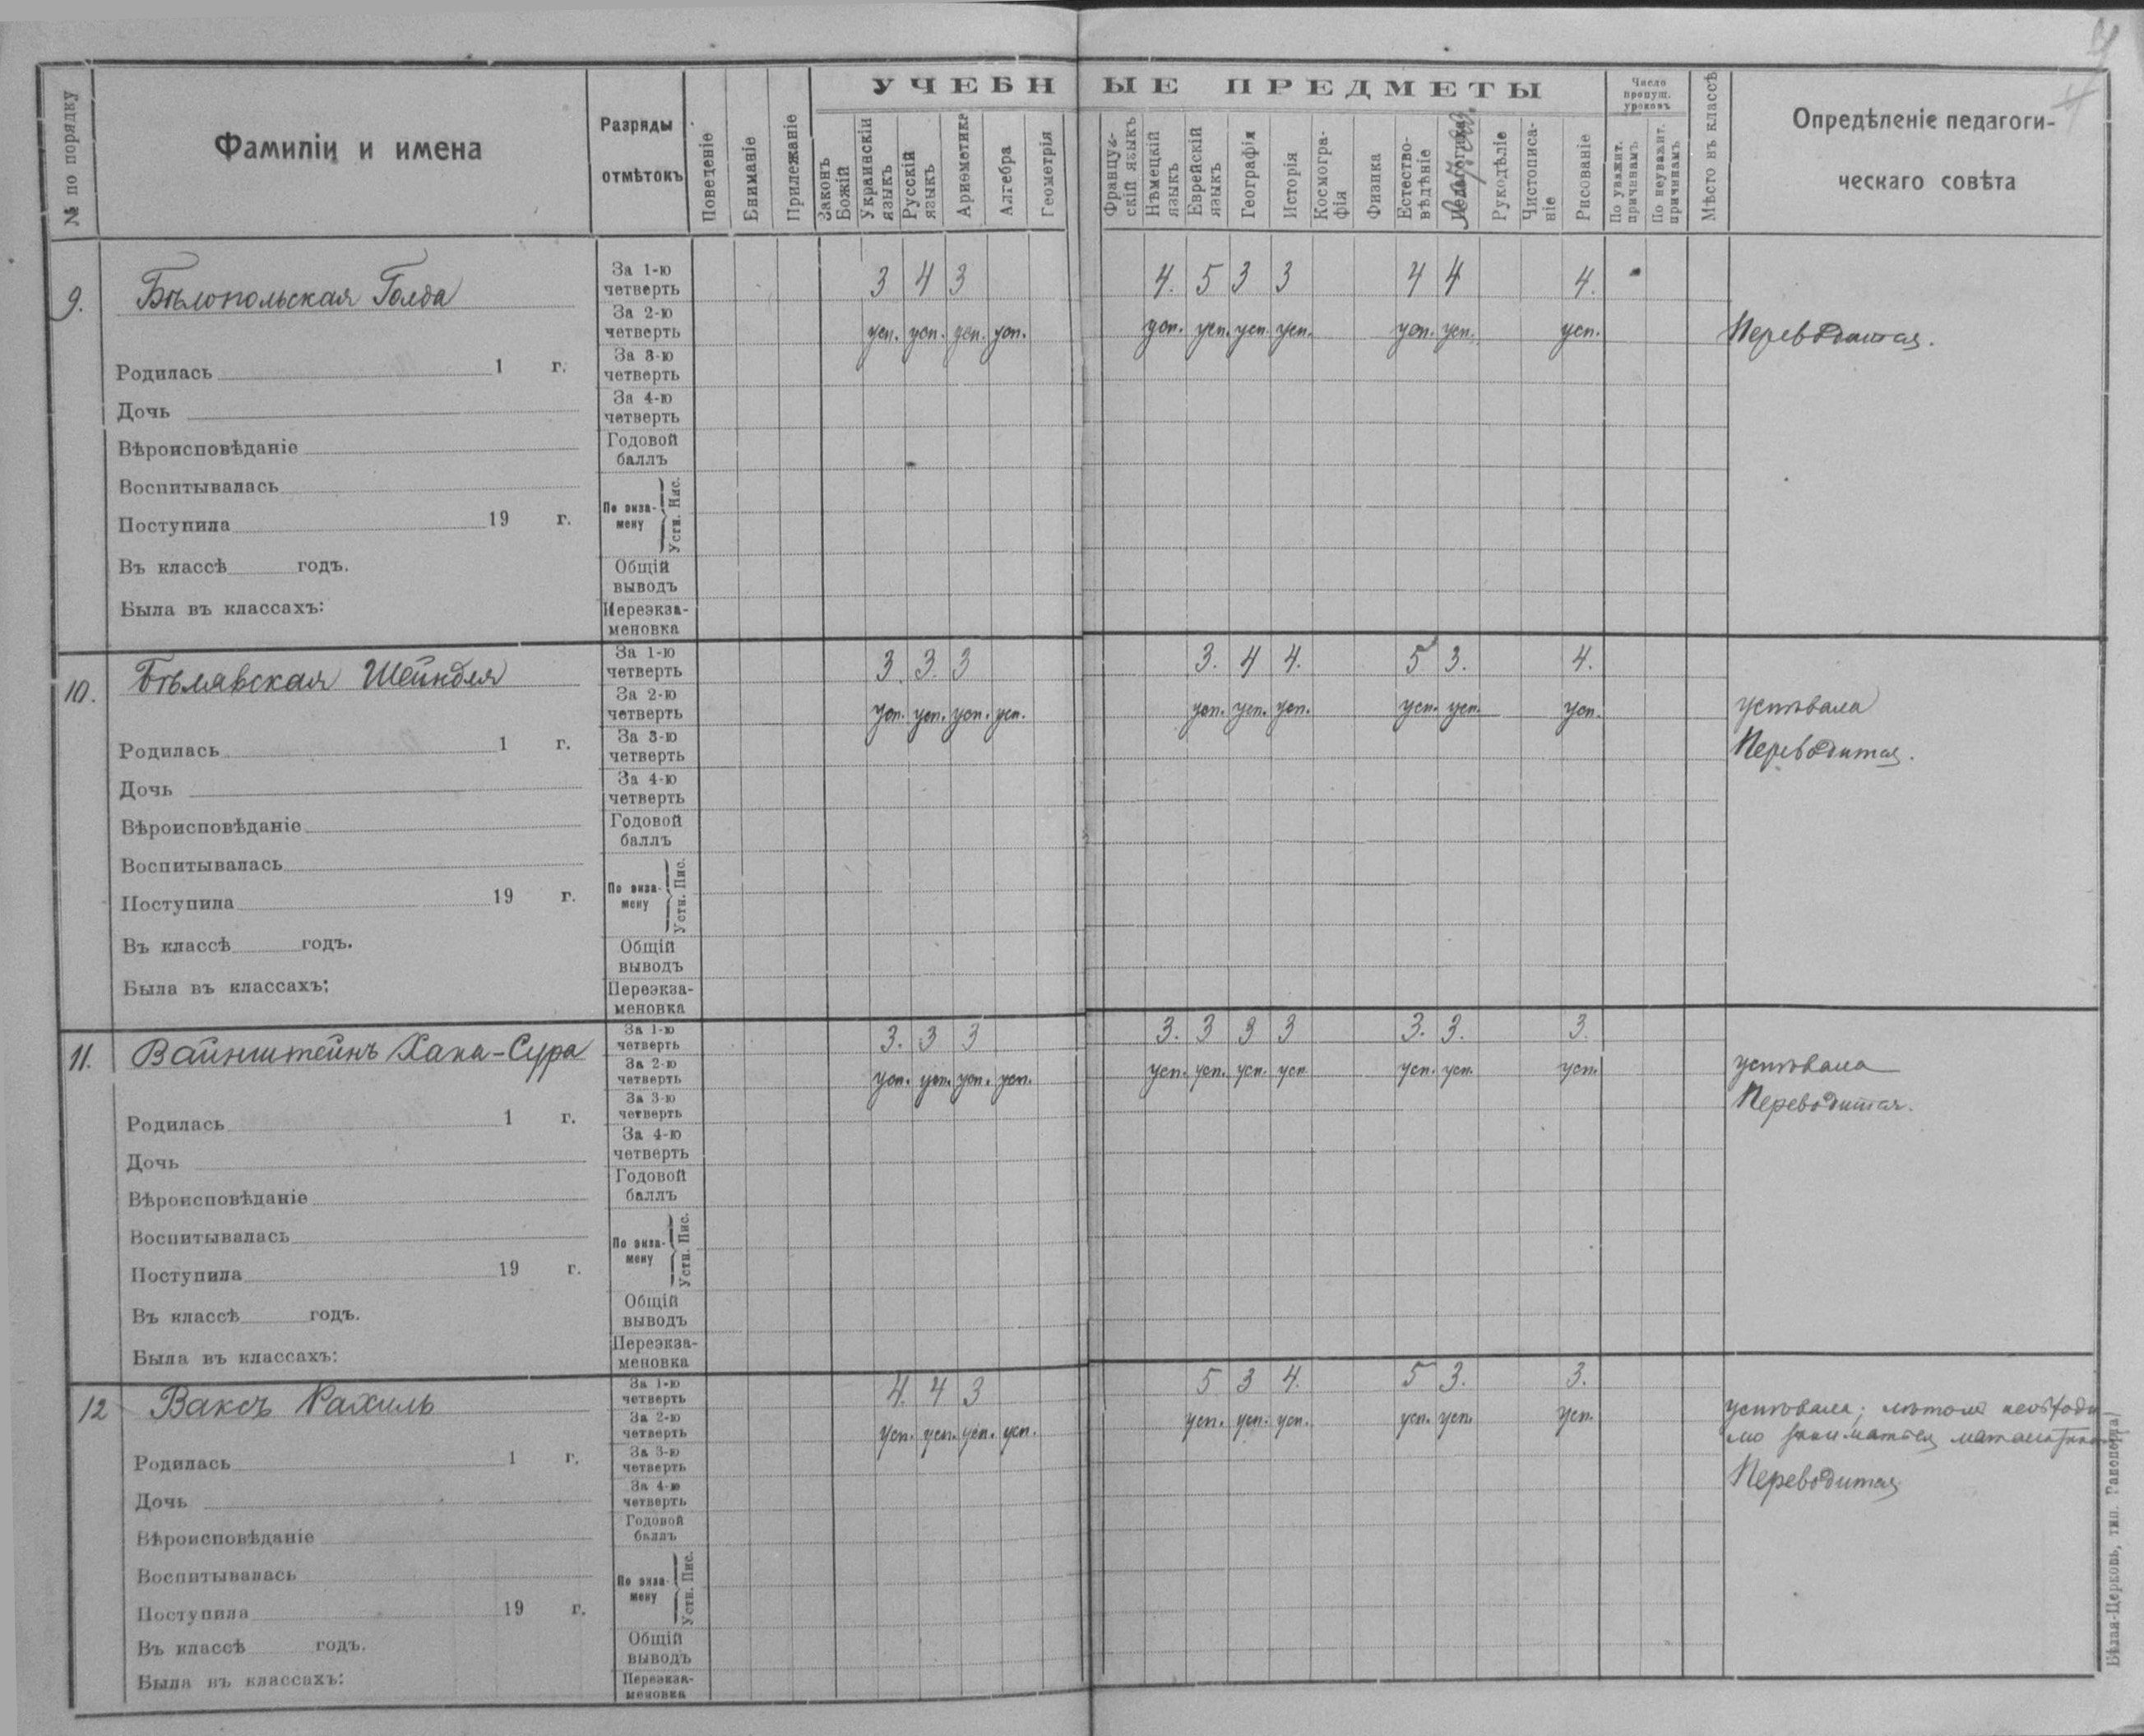 УЧЕБНЫЕ ПРЕДМЕТЫ
№ по порядку
Фамиліи и имена
Разряды отмѣтокъ
Поведеніе
Вниманіе
Прилежаніе
Законъ Божій
Украинскій языкъ
Русскій языкъ
Ариѳметика
Алгебра
Геометрія
Француз-
скій языкъ
Нѣмецкій языкъ
Еврейскій языкъ
Географія
Исторія
Космогра-
фія
Физика
Естество-
вѣдѣніе
Рукодѣліе
Чистописа-
ніе
Рисованіе
Число пропущ. уроковъ
По уважит. причинамъ
По неуважит. причинамъ
Мѣсто въ классѣ
Опредѣленіе педагоги-
ческаго совѣта
9. Бѣлопольская Голда
За 1-ю четверть 3 4 3 4. 5 3 3 4 4 4.
За 2-ю четверть усп. усп. усп. усп. усп. усп. усп. усп. усп. усп. усп.
Переводится.
За 3-ю четверть
Родилась 1 г.
За 4-ю четверть
Дочь
Годовой баллъ
Вѣроисповѣданіе
Воспитывалась
По экза-
мену Устн. Пис.
Поступила 19 г.
Въ классѣ годъ.
Общій выводъ
Была въ классахъ:
Переэкза-
меновка
10. Бѣлявская Шейндля
За 1-ю четверть 3. 3. 3 3. 4 4. 5 3. 4.
За 2-ю четверть усп. усп. усп. усп. усп. усп. усп. усп. усп. усп.
успѣвала
Переводится.
За 3-ю четверть
Родилась 1 г.
За 4-ю четверть
Дочь
Годовой баллъ
Вѣроисповѣданіе
Воспитывалась
По экза-
мену Устн. Пис.
Поступила 19 г.
Въ классѣ годъ.
Общій выводъ
Была въ классахъ:
Переэкза-
меновка
11. Вайнштейнъ Хана-Сура
За 1-ю четверть 3. 3 3 3. 3 3 3 3. 3. 3.
За 2-ю четверть усп. усп. усп. усп. усп. усп. усп. усп усп. усп. усп.
успѣвала
Переводится.
За 3-ю четверть
Родилась 1 г.
За 4-ю четверть
Дочь
Годовой баллъ
Вѣроисповѣданіе
Воспитывалась
По экза-
мену Устн. Пис.
Поступила 19 г.
Въ классѣ годъ.
Общій выводъ
Была въ классахъ:
Переэкза-
меновка
12 Ваксъ Рахиль
За 1-ю четверть 4. 4 3 5 3 4. 5 3. 3.
За 2-ю четверть усп. усп. усп. усп. усп. усп. усп. усп. усп. усп.
успѣвала; лѣтомъ необходи
мо заниматься
Переводится
За 3-ю четверть
Родилась 1 г.
За 4-ю четверть
Дочь
Годовой баллъ
Вѣроисповѣданіе
Воспитывалась
По экза-
мену Устн. Пис.
Поступила 19 г.
Въ классѣ годъ.
Общій выводъ
Была въ классахъ:
Переэкза-
меновка
Бѣлая-Церковь, тип.